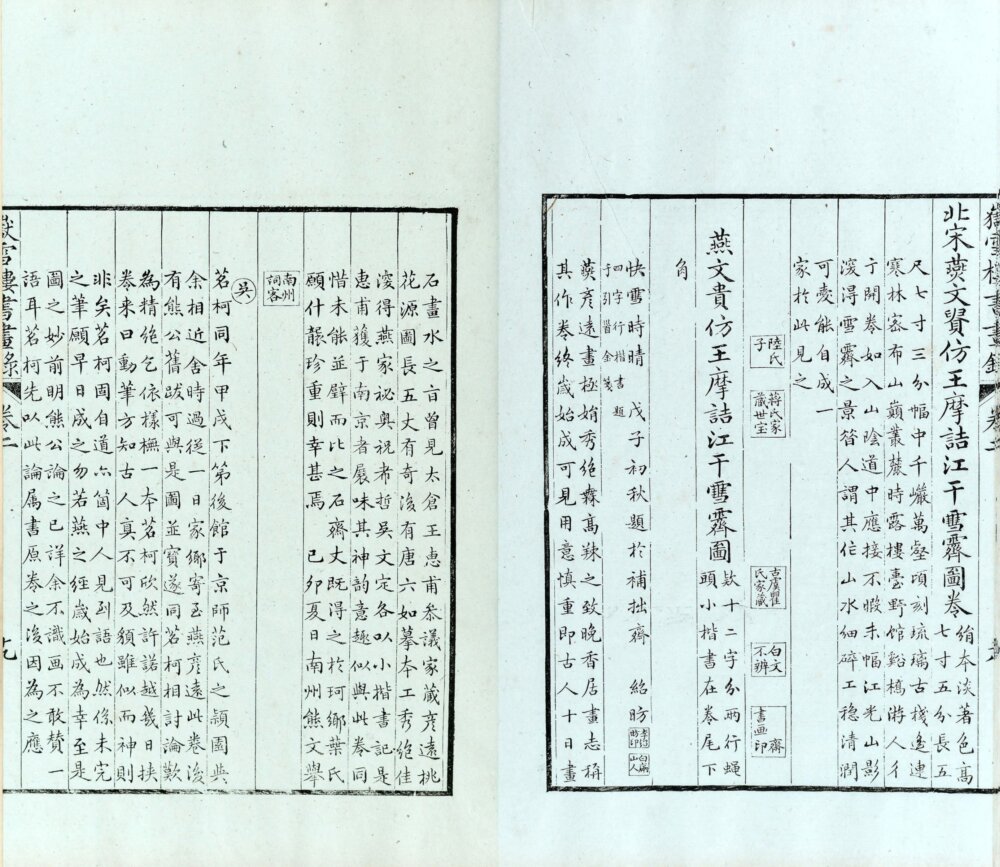 嶽雪樓書畫錄 卷二
北宋燕文貴仿王摩詰江干雪霽圖卷 絹本淡著色高
七寸五分長五
尺七寸三分幅中千巖萬壑頃刻琉璃古棧邊連
寒林密布山巔叢麓時露樓臺野館谿橋游人彳
亍開卷如入山陰道中應接不暇末幅江光山影
滾得雪霽之景昝人謂其作山水細碎工穩清潤
可愛能自成一
家於此見之
陸氏子
蔣氏家藏世寶
古虞瞿氏家藏
白文不辨
齋書画印
燕文貴仿王摩詰江干雪霽圖 欵十二字分兩行蠅
頭小楷書在卷尾下
角
快雪時晴 戊子初秋題於補拙齋 紹昉
四字行楷書題
于引首晉金箋
白
山人
燕彥遠畫極娟秀絕無高辣之致晚香居畫志稱
其作卷終歲始成可見用意慎重即古人十日畫
石畫水之旨曾見太倉王惠甫叅議家藏彥遠桃
花源圖長五丈有奇後有唐六如摹本工秀絕佳
滾得燕家祕奧祝希哲吳文定各以小楷書記是
惠甫獲于南京者展味其神韵意趣似與此卷同
惜未能並璧而比之石齋丈既得之於珂鄉葉氏
願什襲珍重則幸甚焉 己卯夏日南州熊文舉
南州詞客
吳
茗柯同年甲戌下第後館于京師范氏之頴園與
余相近舍時過從一日家鄉寄至燕彥遠此卷後
有熊公舊跋可與是圖並寶遂同茗柯相討論歎
為精絕乞依樣橅一本茗柯欣然許諾越幾日挾
卷來曰動筆方知古人真不可及須雖似而神則
非矣茗柯固自道亦箇中人見到語也然係未完
之筆願早日成之勿若燕之經歲始成為幸至是
圖之妙前明熊公論之已詳余不識画不敢贊一
語耳茗柯先以此論属書原卷之後因為之應
嶽雪樓書畫錄 卷二 九